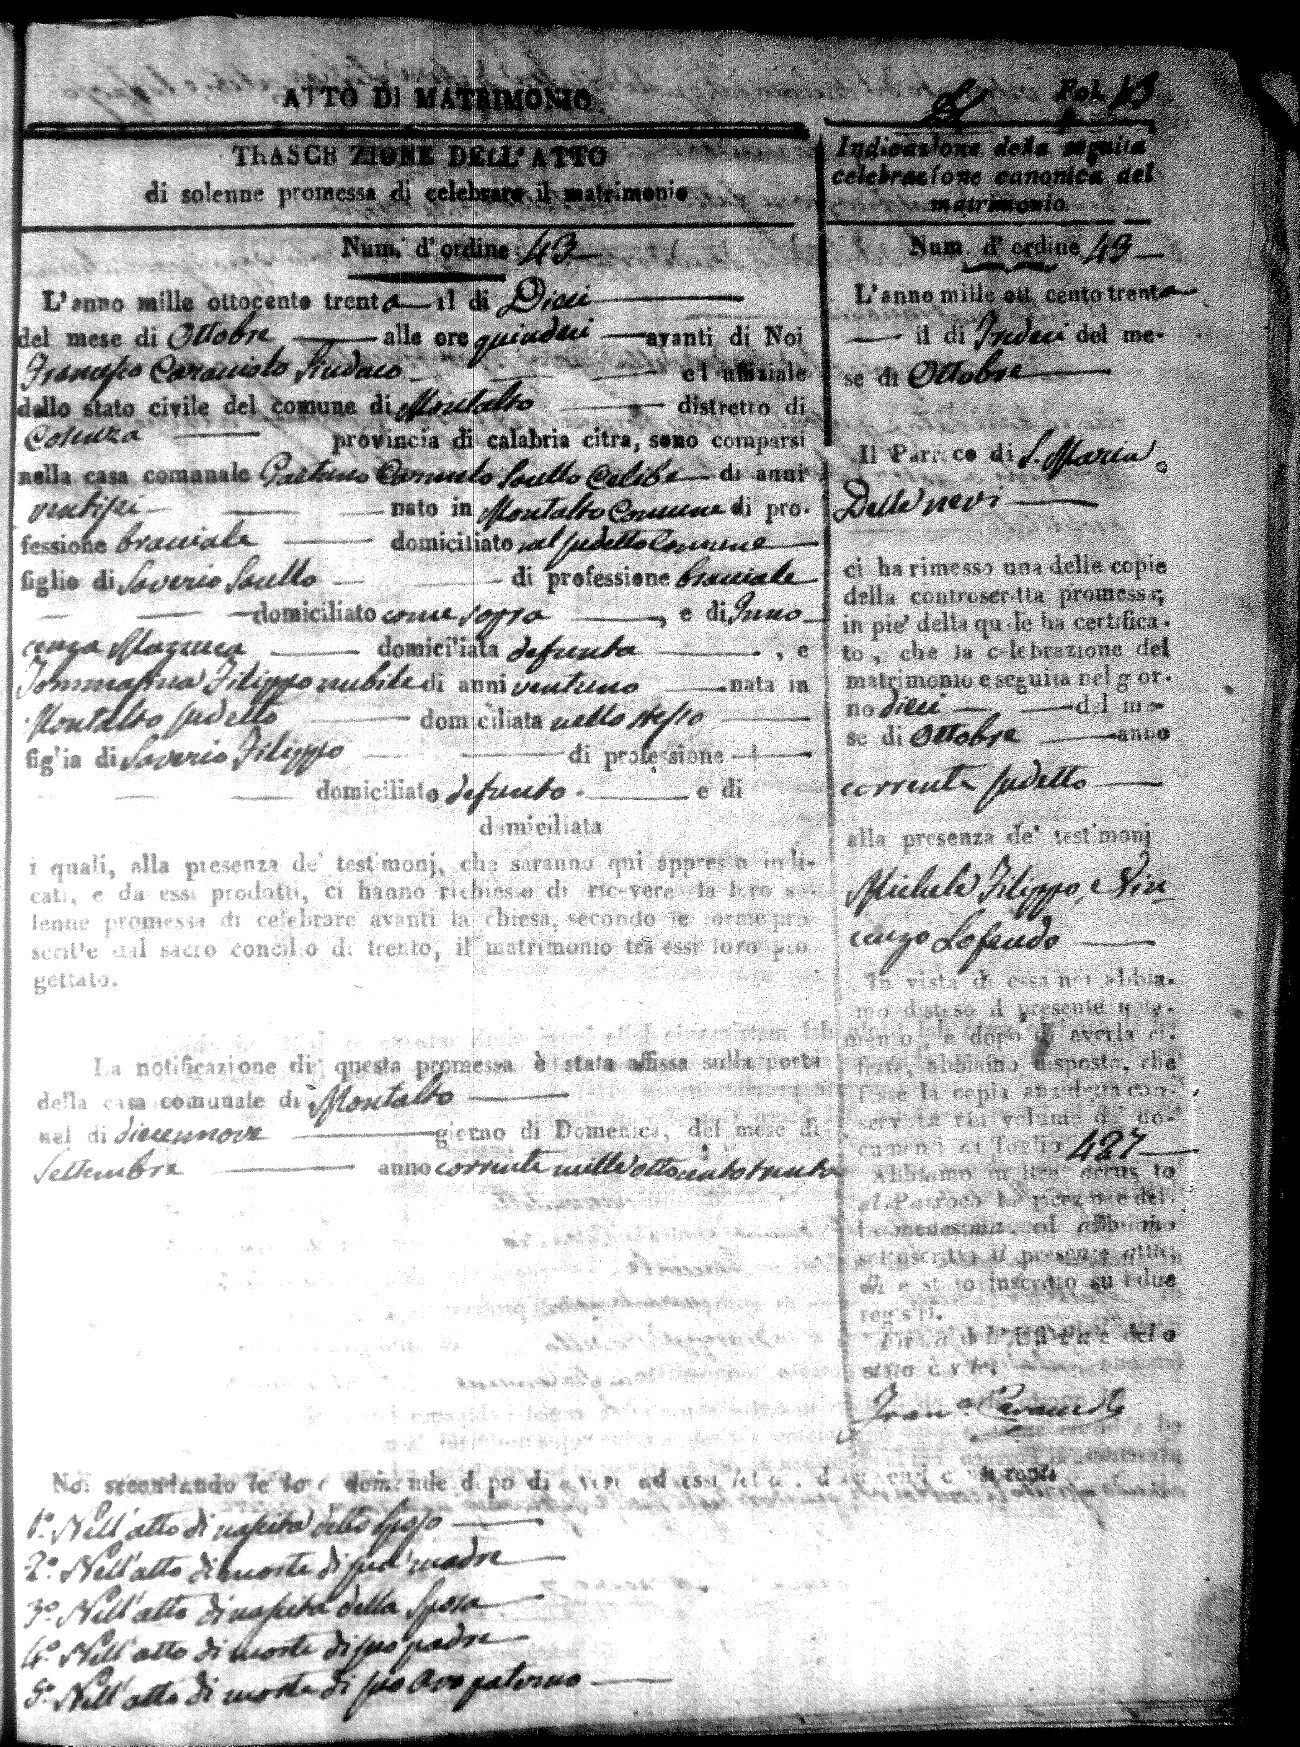 ATTO DI MATRIMONIO
Fol. 43
TRASCRIZIONE DELL'ATTO
di solenne promessa di celebrare il matrimonio
Num. d'ordine 43
L'anno mille ottocento trenta il di Dieci
del mese di Ottobre alle ore quindeci avanti di Noi
Francesco Sindaco ed uffiziale
dello stato civile del comune di Montalto distretto di
Cosenza provincia di calabria citra, sono comparsi
nella casa comunale Gaetano Carmelo Saullo Celibe di anni
ventisei nato in Montalto Comune di pro-
fessione bracciale domiciliato nel sudetto Comune
figlio di Saverio Saullo di professione bracciale
domiciliato come sopra , e di Inno
cenza domiciliata defunta , e
Tommasina Filippo nubile di anni ventuno nata in
Montalto sudetto domiciliata nello stesso
figlia di Saverio Filippo di professione
domiciliato defunto e di
domiciliata
i quali, alla presenza de' testimonj, che saranno qui appresso indi-
cati, e da essi prodotti, ci hanno richiesto di ricevere la loro so-
lenne promessa di celebrare avanti la chiesa, secondo le forme pre
scritte dal sacro concilio di trento, il matrimonio tra essi loro pro
gettato.
La notificazione di questa promessa è stata affissa sulla porta
della casa comunale di Montalto
nel di diecennove giorno di Domenica, del mese di
Settembre anno corrente mille ottocento trenta
Noi secondando le loro domande dopo di aver ad essi letti
1° Nell'atto di nascita dello sposo
2° Nell'atto di morte di sua madre
3° Nell'atto di nascita della sposa
4° Nell'atto di morte di suo padre
5° Nell'atto di morte di suo avo paterno
Indicazione della seguita
celebrazione canonica del
matrimonio
Num. d'ordine 43
L'anno mille ottocento trenta
il di Tredeci del me-
se di Ottobre
Il Parroco di S. Maria
Delle nevi
ci ha rimesso una delle copie
della controscritta promessa,
in pie' della quale ha certifica-
to, che la celebrazione del
matrimonio e seguita nel gior-
no dieci del me-
se di Ottobre anno
corrente sudetto
alla presenza de' testimonj
Michele Filippo, e Vin
cenzo Lofeudo
In vista di essa noi abbia-
mo disteso il presente notamento, e dopo di averla ci-
frata, abbiamo disposto, che
fosse la copia anzidetta con-
servata nel volume de' do-
cumenti al foglio 427
Abbiamo inoltre accusato
al Parroco la ricezione del-
la medesima, ed abbiamo
sottoscritto il presente atto,
che è stato inscritto su i due
registri.
Firma dell'Uffiziale dello
stato civile